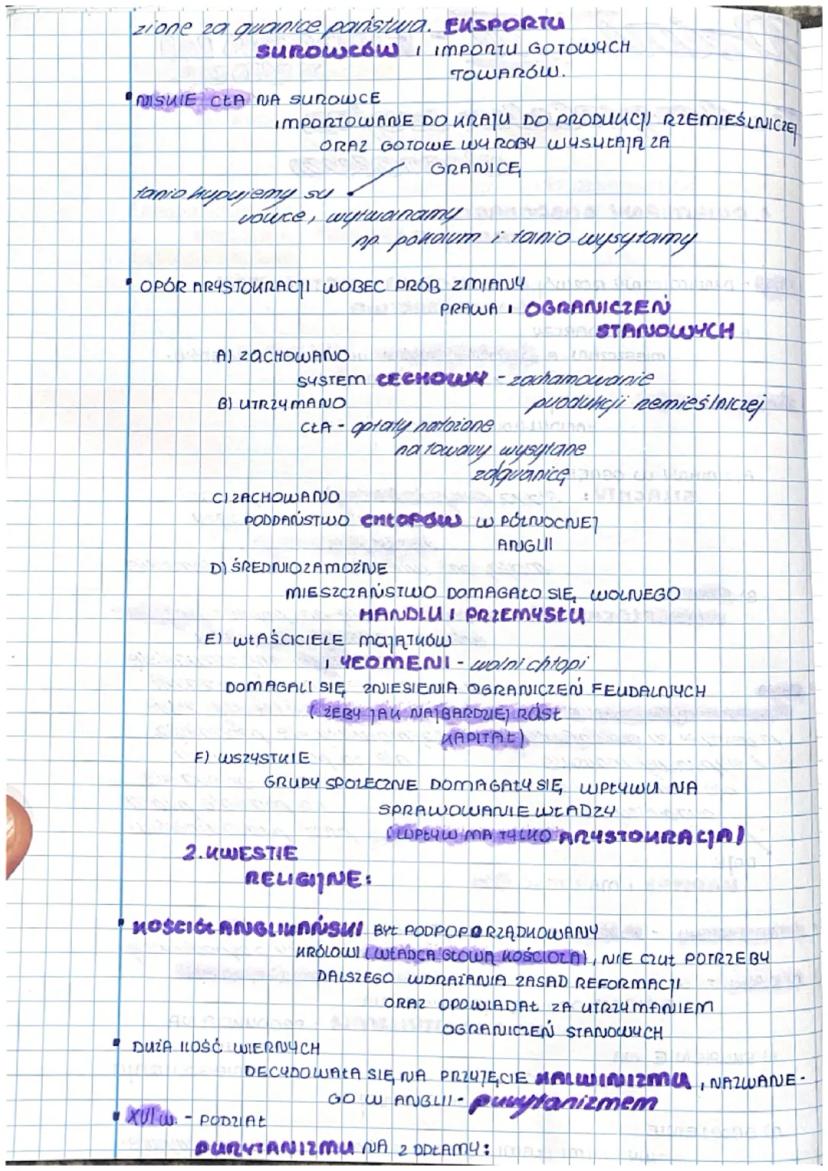 zione za granice państwa. EKSPORTU
SUROWCÓW I IMPORTU GOTOWYCH
TOWARÓW.
• NISKIE CŁA NA SUROWCE
IMPORTOWANE DO KRAJU DO PRODUKCJI RZEMIEŚLNICZEJ
ORAZ GOTOWE WYROBY WYSYŁAJĄ ZA
GRANICĘ
tanio kupujemy su
rowce, wytwarzamy
np. pokarm i tanio wysyłamy
• OPÓR ARYSTOKRACJI WOBEC PRÓB ZMIANY
PRAWA I OGRANICZEŃ
STANOWYCH
A) ZACHOWANO
SYSTEM CECHOWY - zachamowanie
B) UTRZYMANO produkcji rzemieślniczej
CŁA - opłaty nałożone
na towary wysyłane
za granicę
C) ZACHOWANO
PODDAŃSTWO CHŁOPÓW W PÓŁNOCNEJ
ANGLII
D) ŚREDNIOZAMOŻNE
MIESZCZAŃSTWO DOMAGAŁO SIĘ WOLNEGO
HANDLU I PRZEMYSŁU
E) WŁAŚCICIELE MAJĄTKÓW
I YEOMENI - wolni chłopi
DOMAGALI SIĘ ZNIESIENIA OGRANICZEŃ FEUDALNYCH
(ŻEBY JAK NAJBARDZIEJ RÓSŁ
KAPITAŁ)
F) WSZYSTKIE
GRUPY SPOŁECZNE DOMAGAŁY SIĘ WPŁYWU NA
SPRAWOWANIE WŁADZY
(WPŁYW MA TYLKO ARYSTOKRACJA)
2. KWESTIE
RELIGIJNE:
• KOŚCIÓŁ ANGLIKAŃSKI BYŁ PODPOPORZĄDKOWANY
KRÓLOWI (WŁADCA GŁOWĄ KOŚCIOŁA), NIE CZUŁ POTRZEBY
DALSZEGO WDRAŻANIA ZASAD REFORMACJI
ORAZ OPOWIADAŁ ZA UTRZYMANIEM
OGRANICZEŃ STANOWYCH
• DUŻA ILOŚĆ WIERNYCH
DECYDOWAŁA SIĘ NA PRZYJĘCIE KALWINIZMU, NAZWANE-
GO W ANGLII - purytanizmem
• XVI w. - PODZIAŁ
PURYTANIZMU NA 2 ODŁAMY: